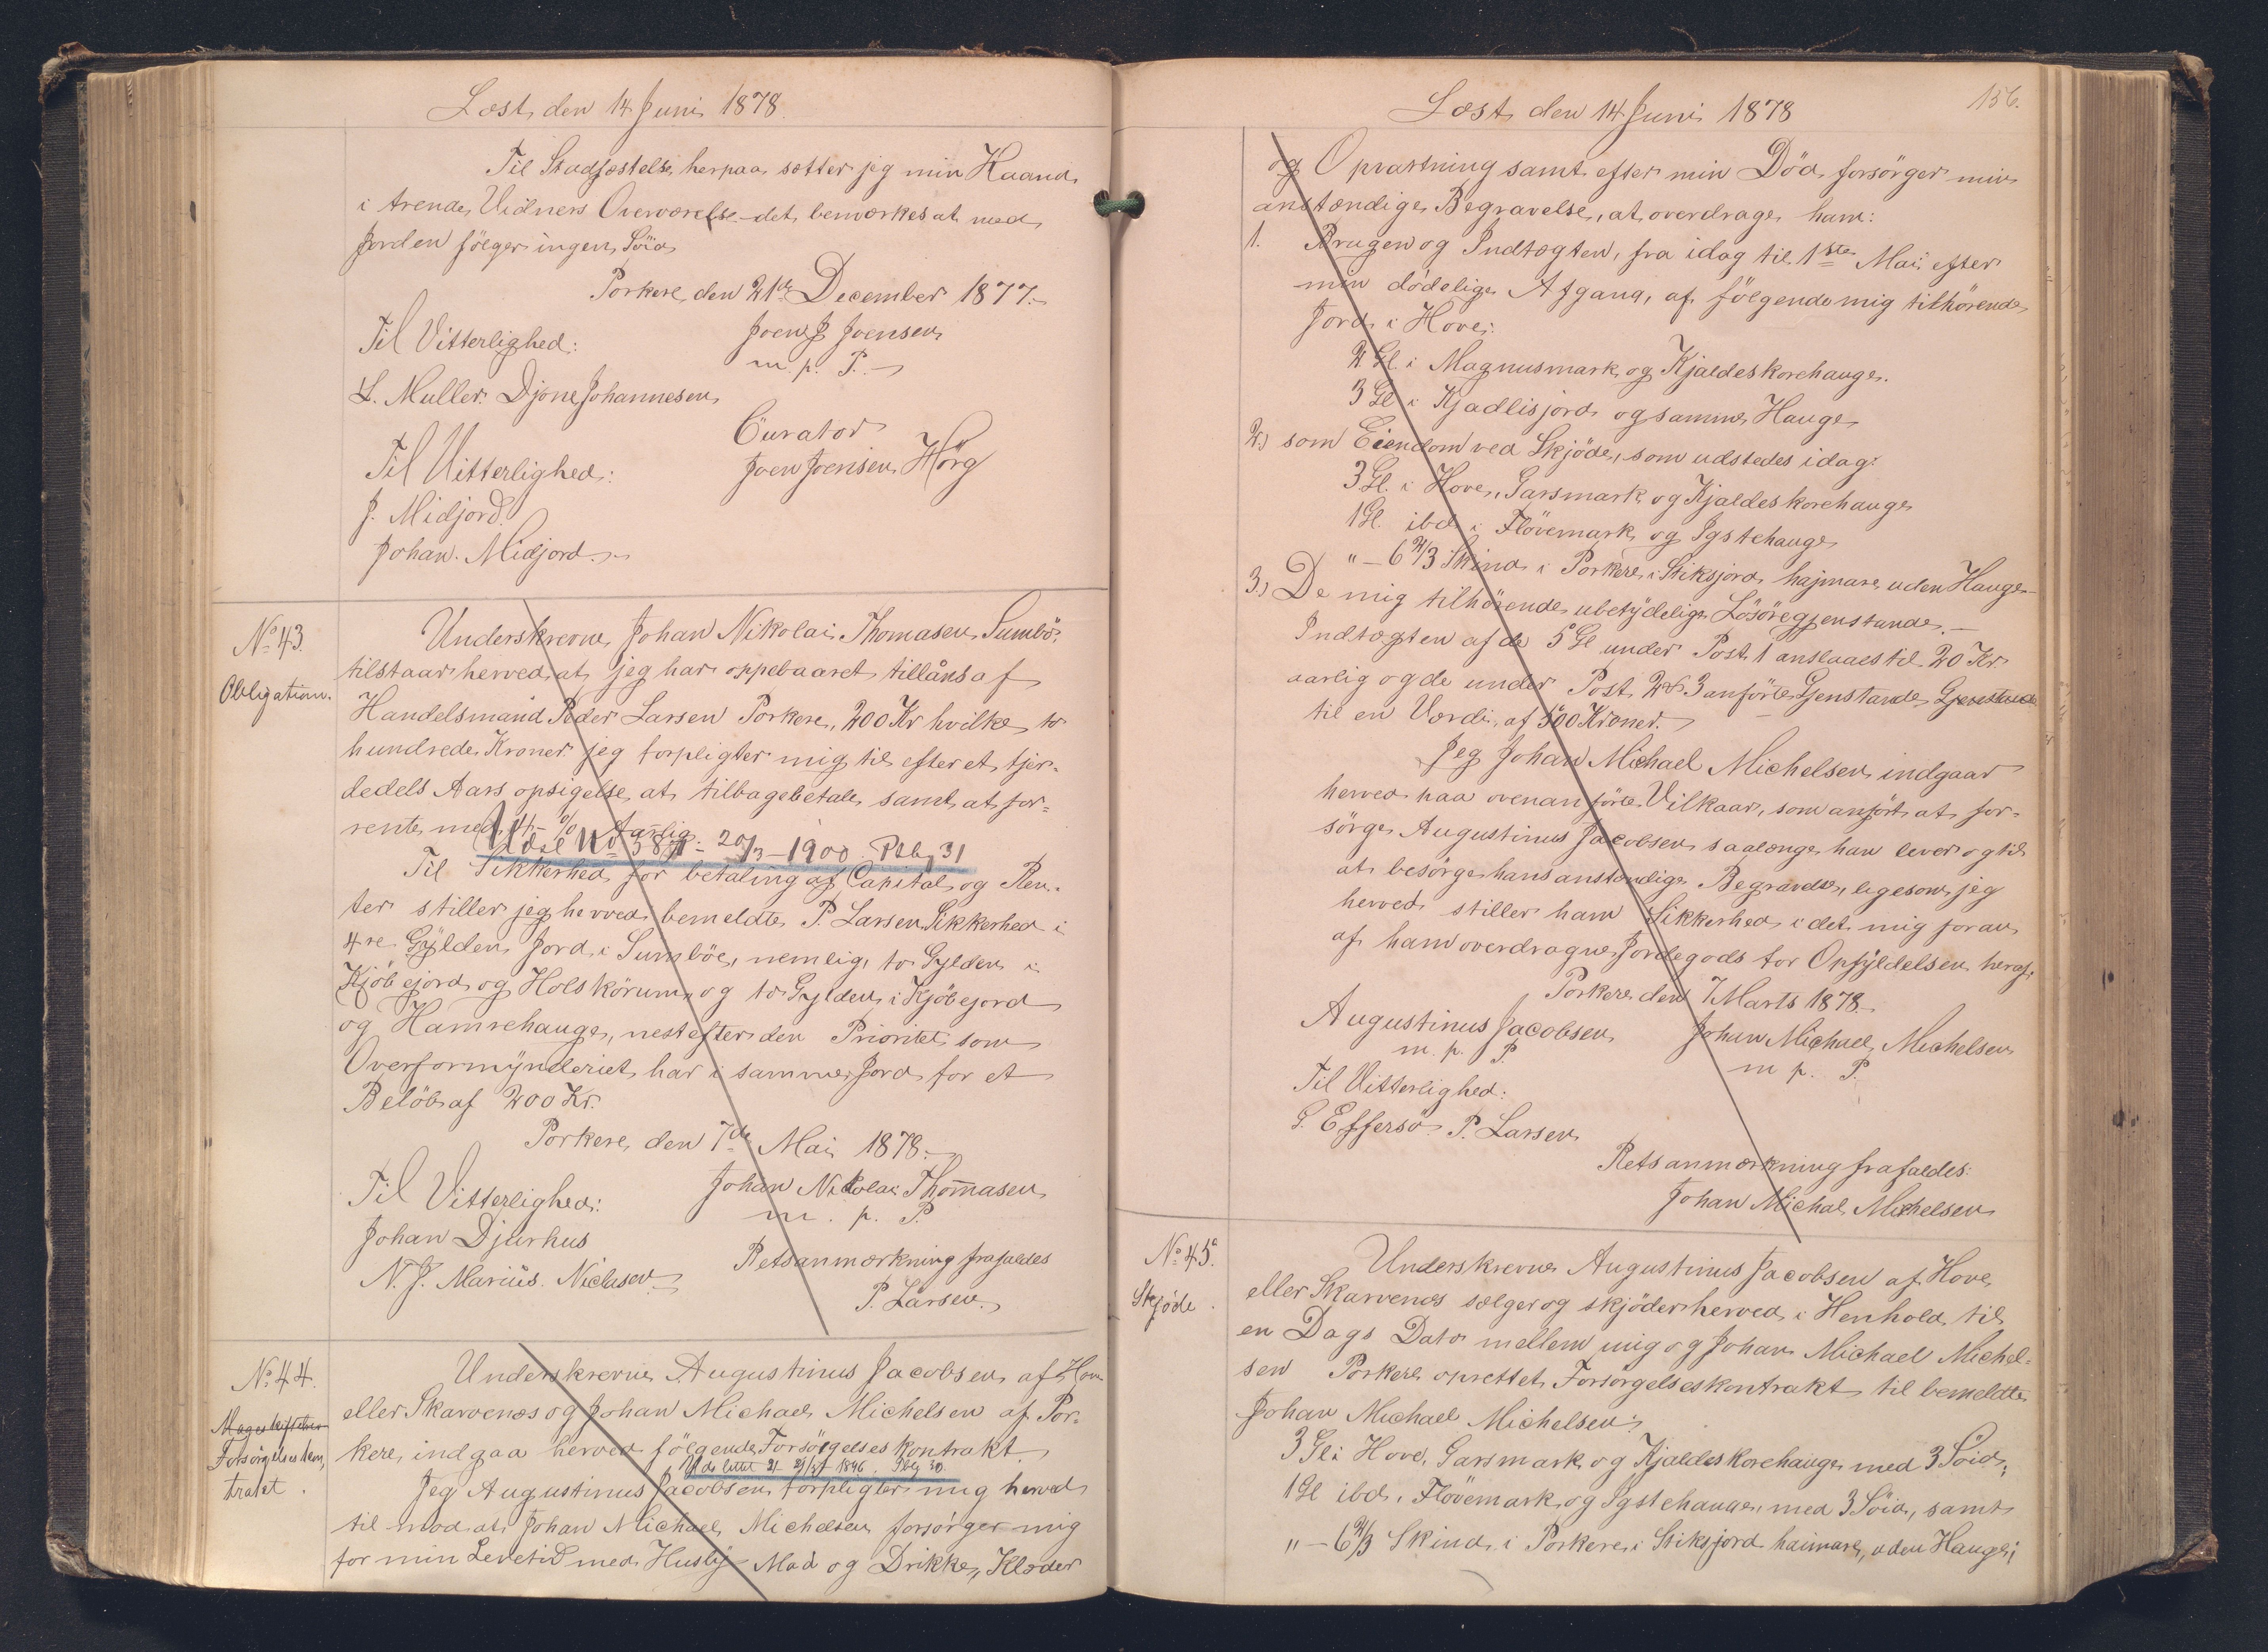 Læst den 14 Juni 1878.
Til Stadfæstelse herpaa sætter jeg min Haand
i trende Vidners Overværelse det bemærkes at med
Jorden fölger ingen Söid
Porkere, den 21de December 1877.
Til Vitterlighed:
Joen J Joensen
m. p. P.
L. Muller. Djone Johannesen
Curator
Til Vitterlighed:
Joen Joensen Hörg
J. Midjord.
Johan. Midjord.
No 43.
Obligation.
Underskrevne Johan Nikolai Thomasen Sumbö,
tilstaar herved, at jeg har oppebaaret tillåns af
Handelsmand Peder Larsen Porkere, 200 Kr hvilke to
hundrede Kroner jeg forpligter mig til efter et fjer-
dedels Aars opsigelse at tilbagebetale samt at for=
rente med 4 % Aarlig.
Udsl No 38 20/3-1900 Ptbg 31
Til Sikkerhed for betaling af Capital og Ren-
ter stiller jeg herved bemeldte P. Larsen Sikkerhed i
4re Gylden Jord i Sumböe, nemlig, to Gylden i
Kjöbejord og Holskörum, og to Gylden i Kjöbejord
og Hamrehauge, nest efter den Prioritet som
Overformynderiet har i samme Jord for et
Belöb af 200 Kr.
Porkere, den 7de Mai 1878.
Til Vitterlighed:
Johan Nikolai Thomasen
m. p. P.
Johan Djurhus
N. J. Marius. Niclasen
Retsanmærkning frafaldes
P. Larsen.
No 44.
Forsörgelseskon,
trakt.
Underskrevne Augustinus Jacobsen af Hove
eller Skarvenæs og Johan Michael Michelsen af Por-
kere, indgaa herved fölgende Forsörgelseskontrakt
1896. Pbg 30
Jeg Augustinus Jacobsen forpligter mig herved
til mod at Johan Michael Michelsen forsörger mig
for min Levetid med Husly Mad og Drikke, Klæder
Læst den 14 Juni 1878
156.
og Opvartning samt efter min Död forsörger min
anstændige Begravelse, at overdrage ham:
1. Brugen og Indtægten, fra idag til 1ste Mai efter
min dödelige Afgang, af fölgende mig tilhörende
Jord i Hove:
2 Gl i Magnusmark og Kjaldeskorehauge.
3 Gl i Kjadlisjord og samme Hauge
2.) som Eiendom ved Skjöde, som udstedes idag:
3 Gl. i Hove, Garsmark og Kjaldeskorehauge
1 Gl. ibd i Flövemark og Igstehauge
" - 6 2/3 Skind i Porkere i Stiksjord hajmare uden Hauge
3.) De mig tilhörende ubetydelige Lösöregjenstande.
Indtægten af de 5 Gl under Post 1 anslaaes til 20 Kr
aarlig og de under Post 2 & 3 anförte Gjenstande Gjenstande
til en Værdi af 500 Kroner.
Jeg Johan Michael Michelsen indgaar
herved paa ovenanförte Vilkaar, som anfört at for-
sörge Augustinus Jacobsen saalænge han lever og til
at besörge hans anstændige Begravelse, ligesom jeg
herved stiller ham Sikkerhed i det mig foran
af ham overdragne Jordegods for Opfyldelsen heraf.
Porkere den 7 Marts 1878.
Augustinus Jacobsen
m. p. P.
Johan Michael Michelsen
m p. P.
Til Vitterlighed:
G. Effersö P. Larsen
Retsanmærkning frafaldes:
Johan Michal Michelsen
No 45.
Skjöde.
Underskrevne Augustinus Jacobsen af Hove
eller Skarvenæs sælger og skjöder herved i Henhold til
en Dags Dato mellem mig og Johan Michael Michel-
sen Porkere oprettet Forsörgelseskontrakt til bemeldte
Johan Michael Michelsen:
3 Gl i Hove, Garsmark og Kjaldeskorehauge med 3 Söid;
1 Gl ibd. Flövemark og Igstehauge, med 3 Söid, samt
" - 6 2/3 Skind i Porkere i Stiksjord haimare, uden Hauge;